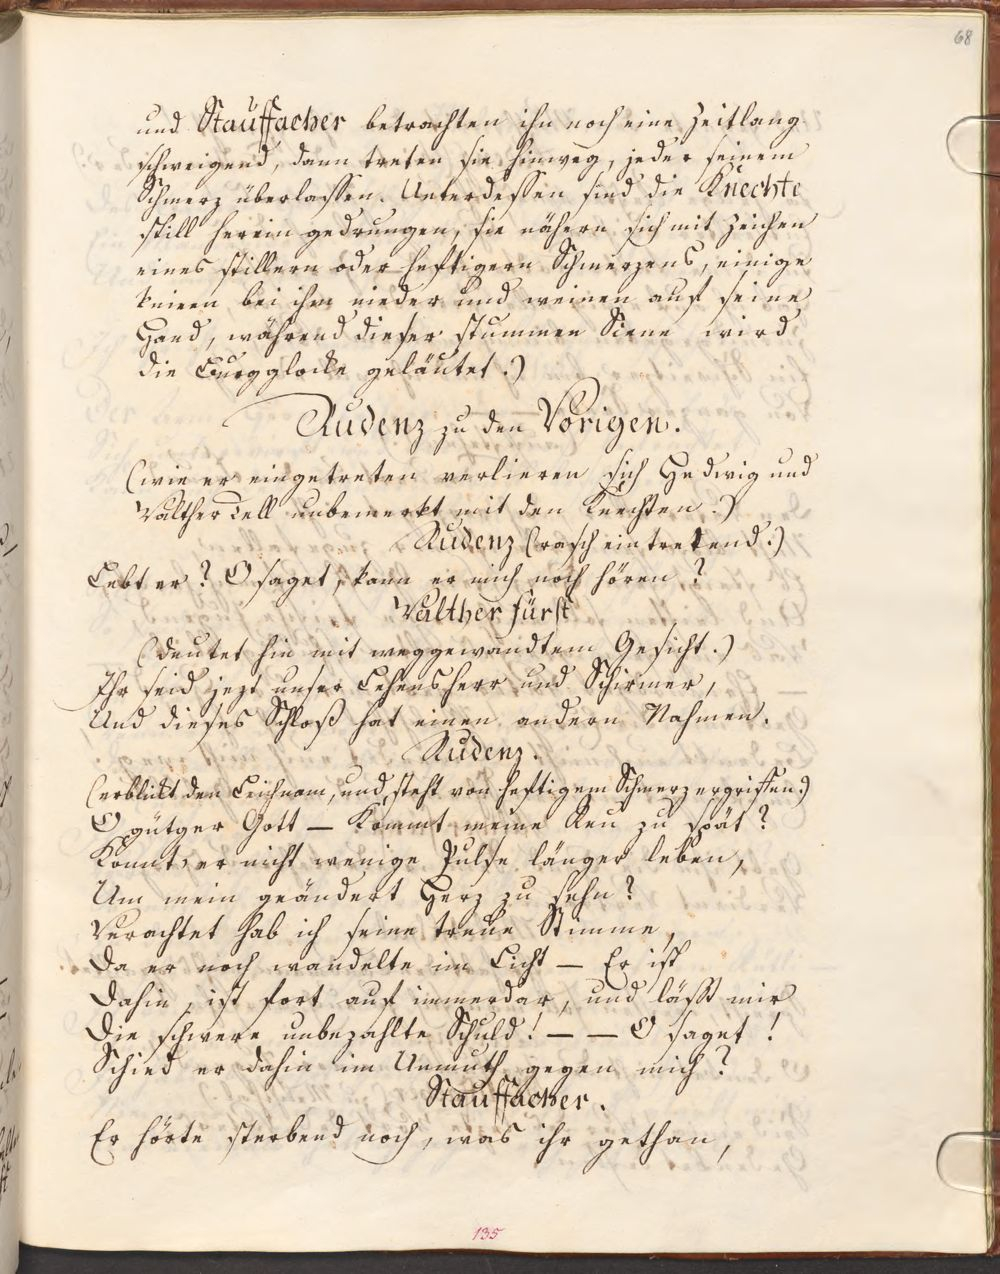 68
und Stauffacher betrachten ihn noch eine Zeitlang
schweigend, dann treten sie hinweg, jeder seinem
Schmerz überlassen. Unterdessen sind die Knechte
still herein gedrungen, sie nähern sich mit Zeichen
eines stillern oder heftigern Schmerzens, einige
knieen bei ihm nieder und weinen auf seine
Hand, während dieser stummen Scene wird
die Burgglocke geläutet.)
Rudenz zu den Vorigen.
(wie er eingetreten verlieren sich Hedwig und
Walther Tell unbemerkt mit den Knechten.)
Rudenz (rasch eintretend.)
Lebt er? O saget, kann er mich noch hören?
Walther Fürst
(deutet hin mit weggewandtem Gesicht.)
Ihr seid jezt unser Lehensherr und Schirmer,
Und dieses Schloß hat einen andern Nahmen.
Rudenz.
(erblickt den Leichnam, und steht von heftigem Schmerz ergriffen.)
O gütger Gott — Kommt meine Reu zu spät?
Konnt er nicht wenige Pulse länger leben,
Um mein geändert Herz zu sehn?
Verachtet hab ich seine treue Stimme,
Da er noch wandelte im Licht — Er ist
Dahin, ist fort auf immerdar, und läßt mir
Die schwere unbezahlte Schuld! — — O saget!
Schied er dahin im Unmuth gegen mich?
Stauffacher.
Er hörte sterbend noch, was ihr gethan,
135